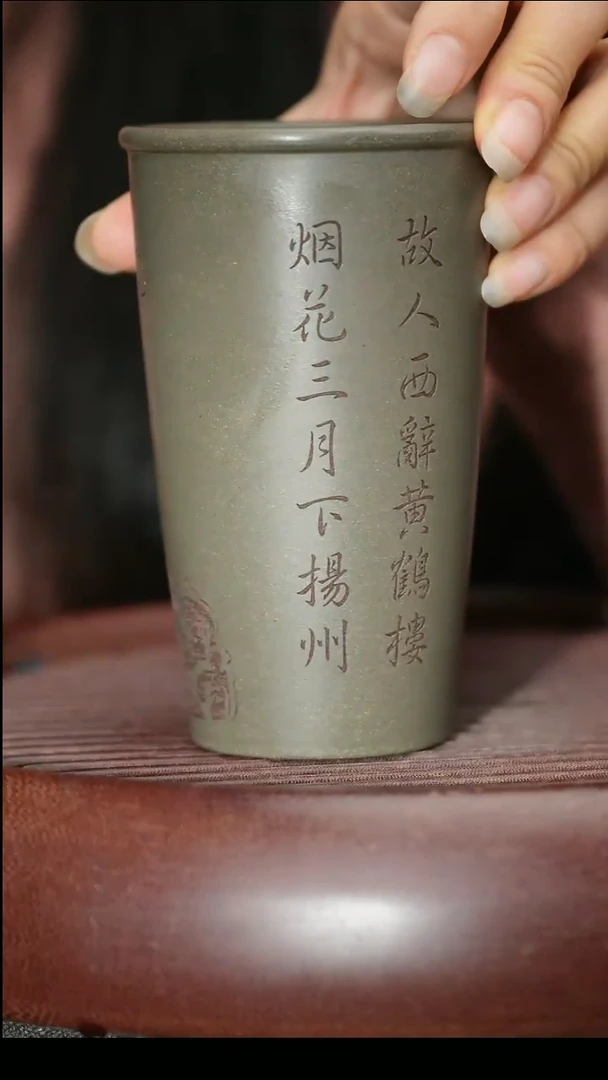 故人西辭黄鶴樓
烟花三月下揚州